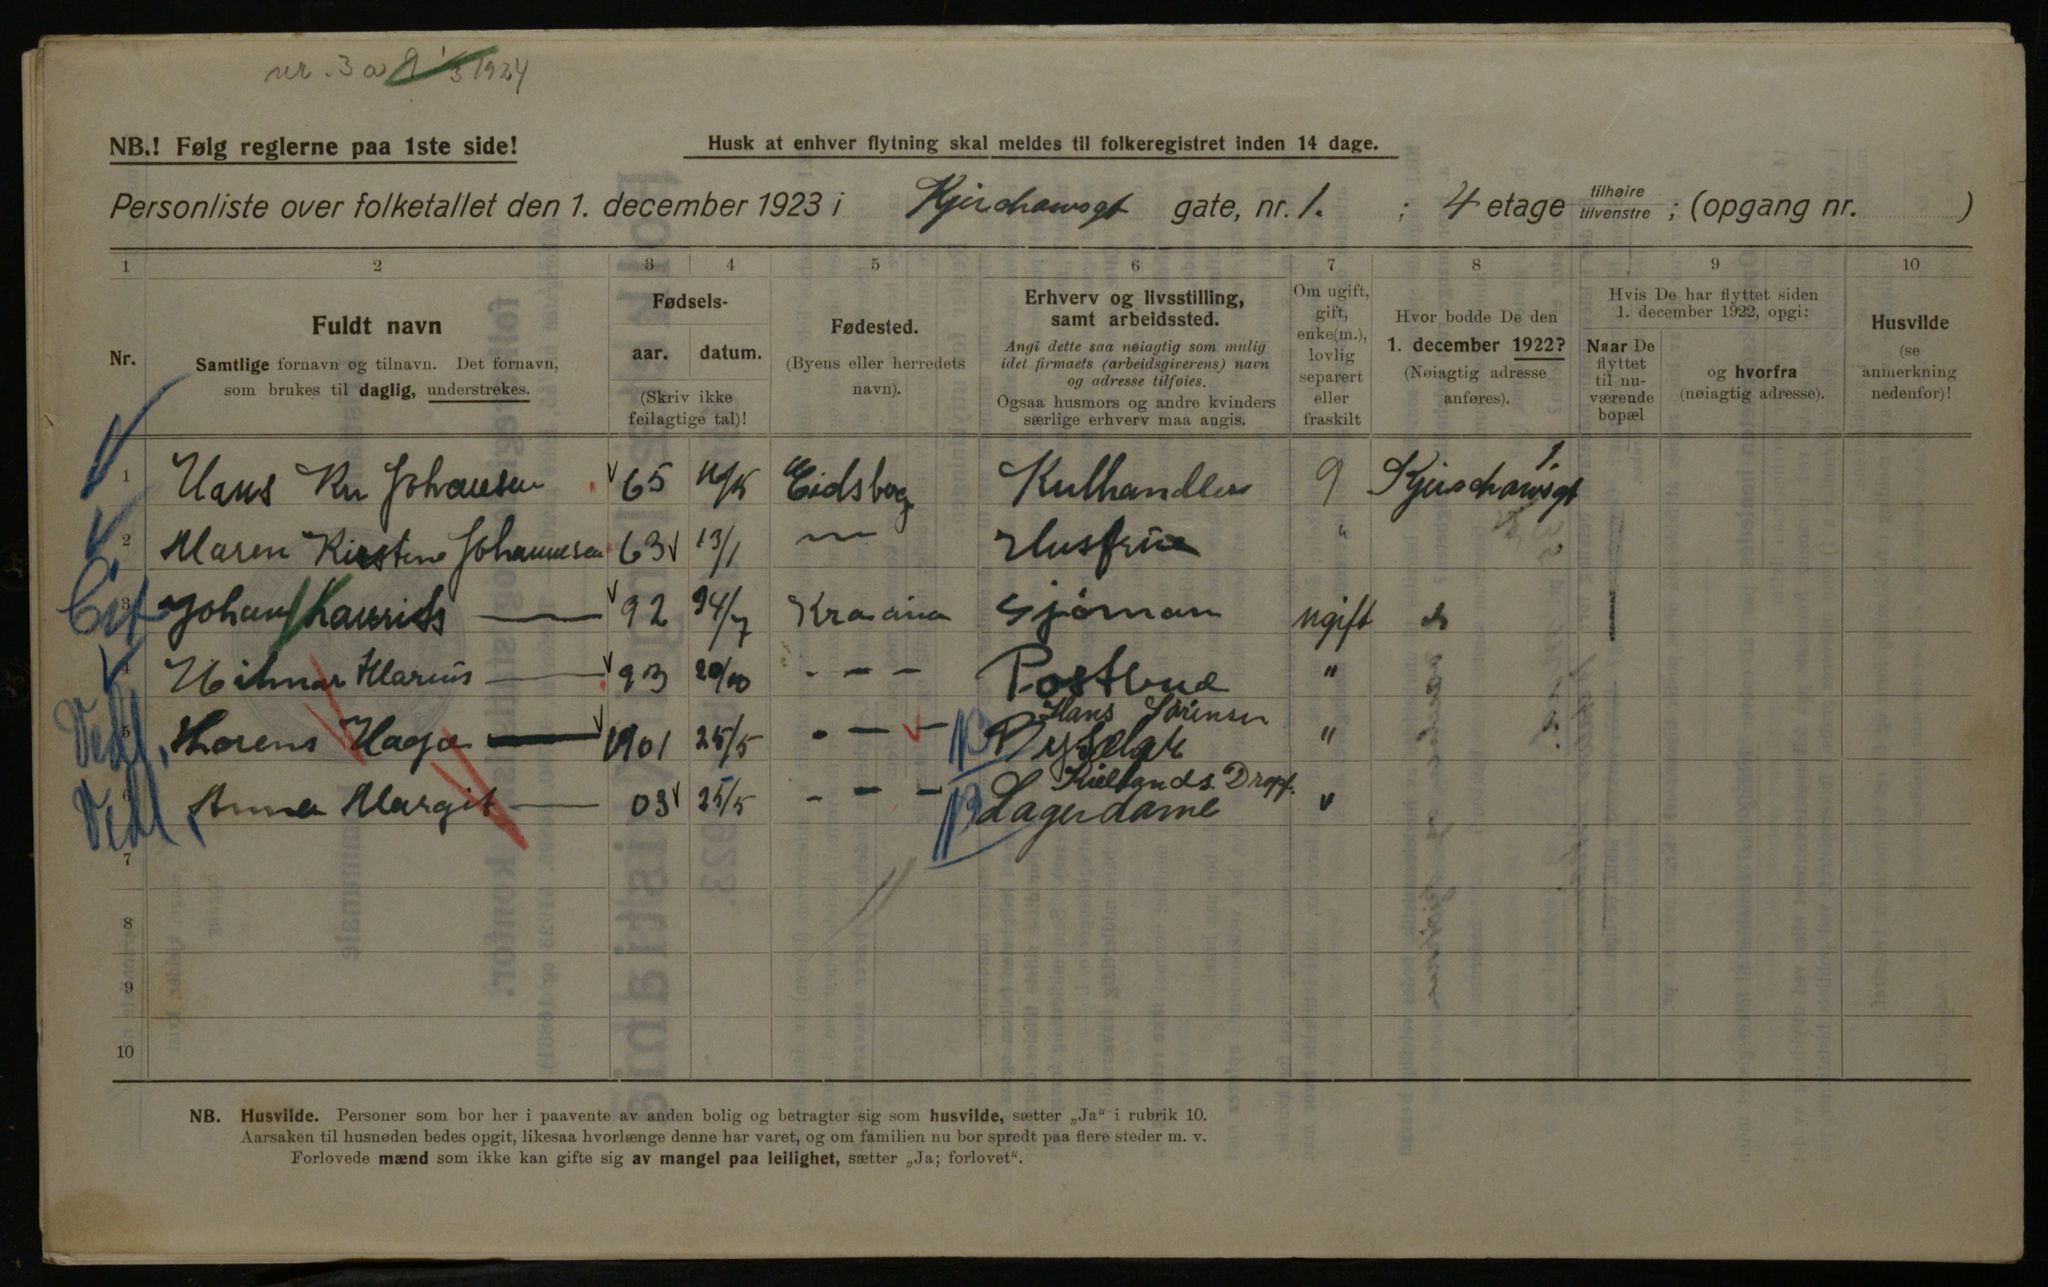 nr. 3 1/3 1924
NB.! Følg reglerne paa 1ste side!
Husk at enhver flytning skal meldes til folkeregistret inden 14 dage.
Personliste over folketallet den 1. december 1923 i Kjerschowsgt gate, nr. 1. ; 4 etage tilhøire tilvenstre ; (opgang nr. )
1 2 3 4 5 6 7 8 9 10
Nr.
Fuldt navn
Samtlige fornavn og tilnavn. Det fornavn,
som brukes til daglig, understrekes.
Fødsels-
aar. datum.
(Skriv ikke
feilagtige tal)!
Fødested.
(Byens eller herredets
navn).
Erhverv og livsstilling,
samt arbeidssted.
Angi dette saa nøiagtig som mulig
idet firmaets (arbeidsgiverens) navn
og adresse tilføies.
Ogsaa husmors og andre kvinders
særlige erhverv maa angis.
Om ugift,
gift,
enke(m.),
lovlig
separert
eller
fraskilt
Hvor bodde De den
1. december 1922?
(Nøiagtig adresse
anføres).
Hvis De har flyttet siden
1. december 1922, opgi:
Naar De
flyttet
til nu-
værende
bopæl
og hvorfra
(nøiagtig adresse).
Husvilde
(se
anmerkning
nedenfor)!
1 Hans Kr Johansen 65 Eidsberg Kulhandler g Kjerschowsgt 1
2 Maren Kirstine Johannesen 63 13/1 — Husfrue "
3 Johan Laurids — 92 24/7 Kra ania Sjöman ugift do
4 Hilmar Marius — 93 20/10 - - - Postbud "
5 Thorens Haga — 1901 25/5 - - - Hans Sørensen "
6 Anna Margit — 03 25/5 - - - Lagerdame Kiellands Dropf. "
7
8
9
10
NB. Husvilde. Personer som bor her i paavente av anden bolig og betragter sig som husvilde, sætter „Ja“ i rubrik 10.
Aarsaken til husnøden bedes opgit, likesaa hvorlænge denne har varet, og om familien nu bor spredt paa flere steder m. v.
Forlovede mænd som ikke kan gifte sig av mangel paa leilighet, sætter „Ja; forlovet“.